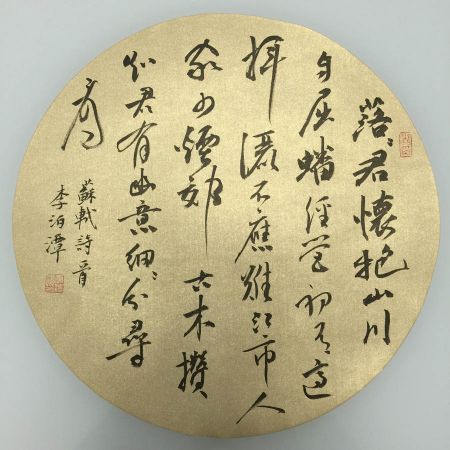 落〻君懷抱山川
自屈蟠經營初有適
揮灑不應難江市人
家少煙邨古木攢
知君有幽意細〻為尋
看
蘇軾詩一首
李泊潭